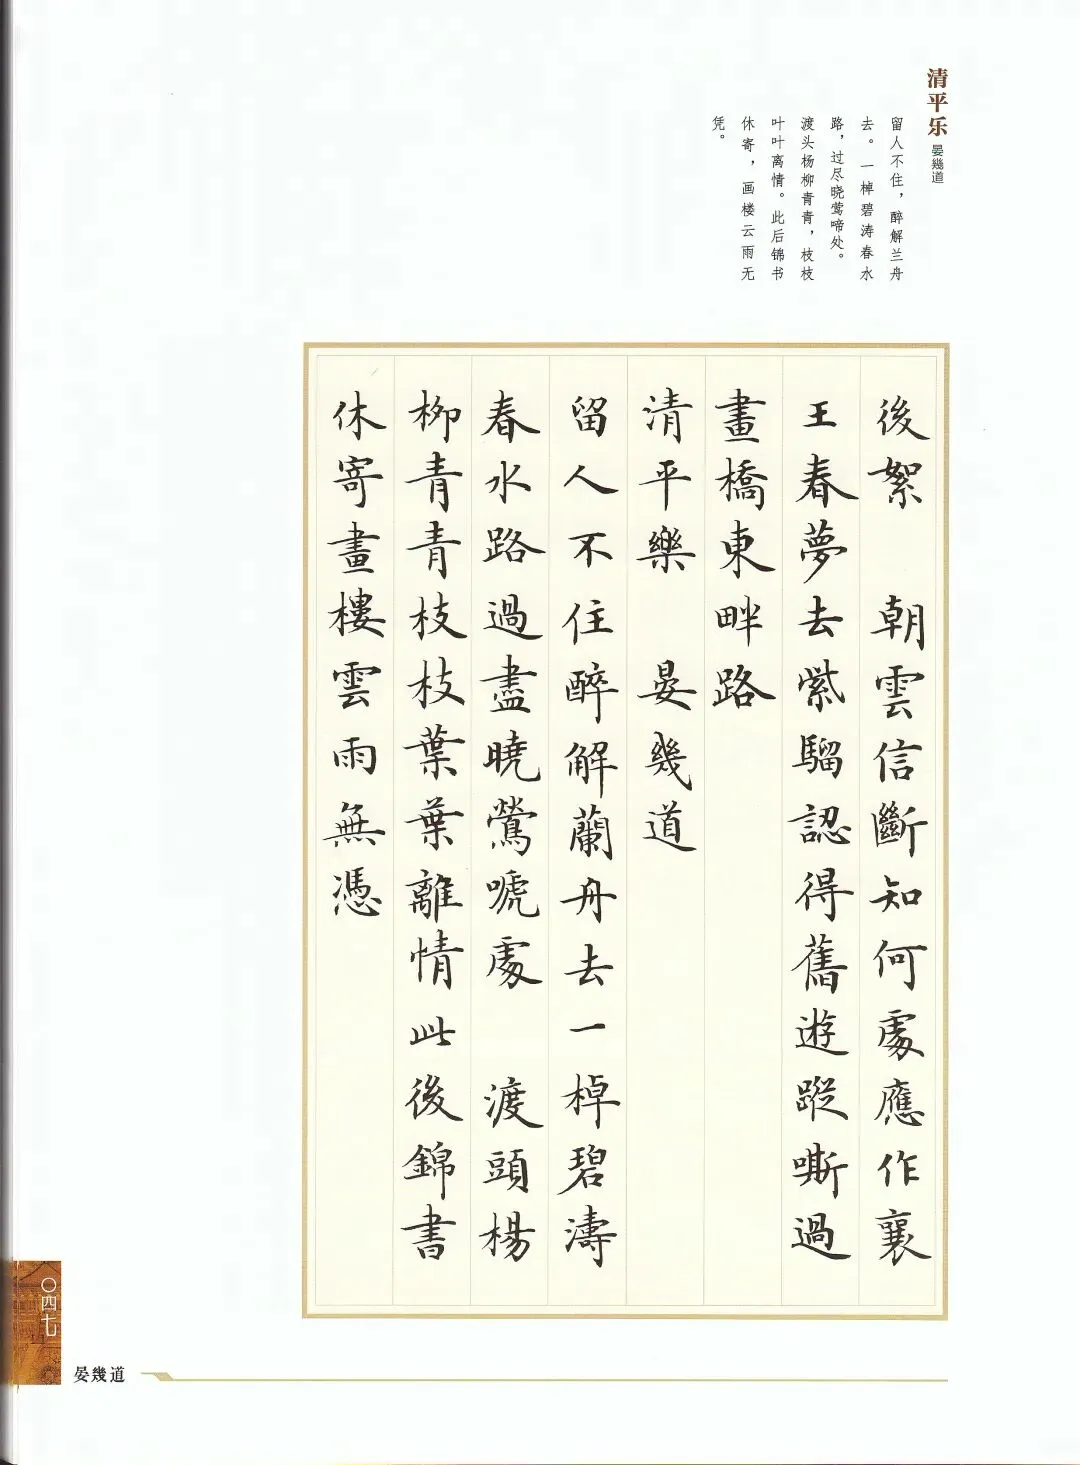 清平乐 晏幾道
留人不住，醉解兰舟
去。一棹碧涛春水
路，过尽晓莺啼处。
渡头杨柳青青，枝枝
叶叶离情。此后锦书
休寄，画楼云雨无
凭。
後絮 朝雲信斷知何處應作襄
王春夢去紫騮認得舊遊蹤嘶過
畫橋東畔路
清平樂 晏幾道
留人不住醉解蘭舟去一棹碧濤
春水路過盡曉鶯嗁處 渡頭楊
柳青青枝枝葉葉離情此後錦書
休寄畫樓雲雨無憑
〇四七
晏幾道